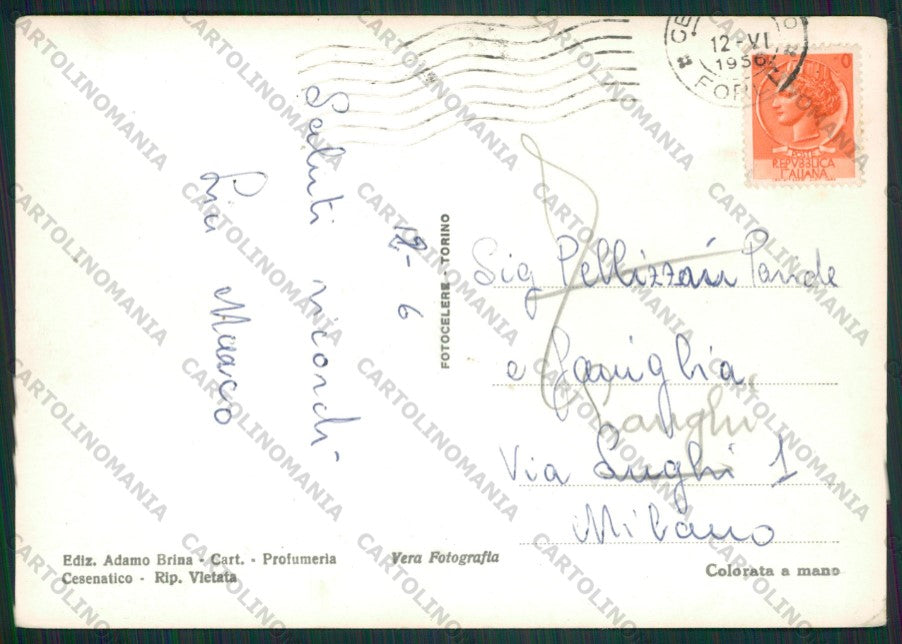 12-VI
1956
FORLI
POSTE
REPVBBLICA
ITALIANA
Saluti ricordi
Lici Marco
12-6
FOTOCELERE - TORINO
Sig Pellizzari Paride
e Famiglia
Langhi
Via Lughi 1
Milano
Ediz. Adamo Brina - Cart. - Profumeria
Cesenatico - Rip. Vietata
Vera Fotografia
Colorata a mano
CARTOLINOMANIA